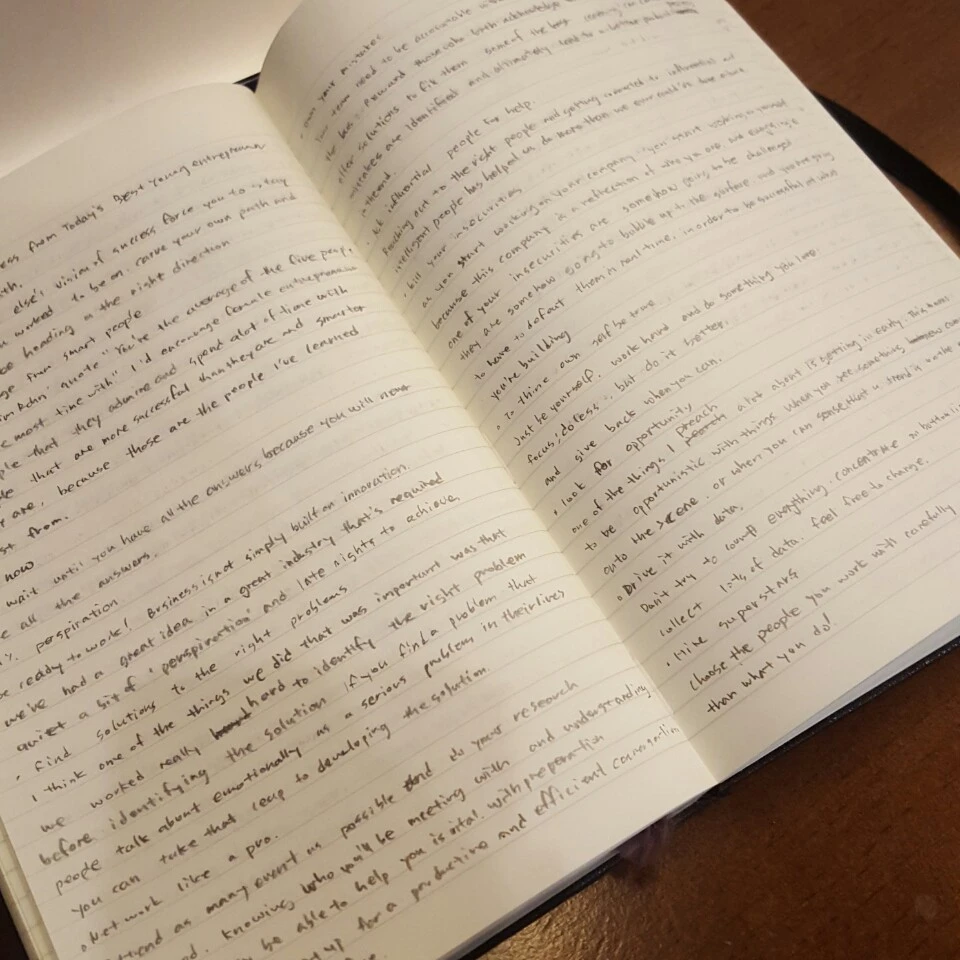 ess from Today's Best Young entrepreneur
th.
else's vision of success force you to stay
worked to be on. carve your own path and
heading in the right direction
from smart people
quote "You're the average of the five people
most time with" I'd encourage female entrepreneurs
ple that they admire and spend alot of time with
le that are more successful than they are and smarter
are, because those are the people I've learned
st from.
now
wait until you have all the answers because you will never
e all the answers.
%. perspiration
be ready to work! Business is not simply built on innovation.
we've had a great idea in a great industry that's required
quiet a bit of "perspiration" and late nights to achieve
• Find solutions to the right problems
I think one of the things we did that was important was that
we worked really hard to identify the right problem
before identifying the solution If you find a problem that
people talk about emotionally as a serious problem in their lives
you can take that leap to developing the solution.
• Network like a pro.
Attend as many event as possible and do your research
Knowing who you'll be meeting with and understanding
be able to help you is vital. with preparation
up for a productive and efficient conversation
your mistakes
team need to be accountable
the has reward those who both acknowledge
offer solutions to fix them some of the best
mistakes are identified and ultimately lead to a better
theard.
Ask influential people for help.
Reaching out to the right people and getting connected to influential and
intelligent people has helped us do more than we ever could've done alone
• kill your insecurities
as you start working on your company, you start working on yourself
because this company is a reflection of who you are, and every single
one of your insecurities are somehow going to be challenged
they are somehow going to bubble up to the surface and you're going
to have to defeat them in real-time, in order to be successful at what
you're building
• To thine own self be true
Just be yourself. work hard and do something you love.
focus, do less .. but do it better.
and give back when you can.
• look for opportunity
one of the things I preach a lot about is getting in early. This means
to be opportunistic with things when you see
onto the scene. or when you can sense that
• Drive it with data.
Don't try to everything. concentrate
collect lots of data. feel free to change.
• Hire superstars
Choose the people you work with carefully
than what you do!